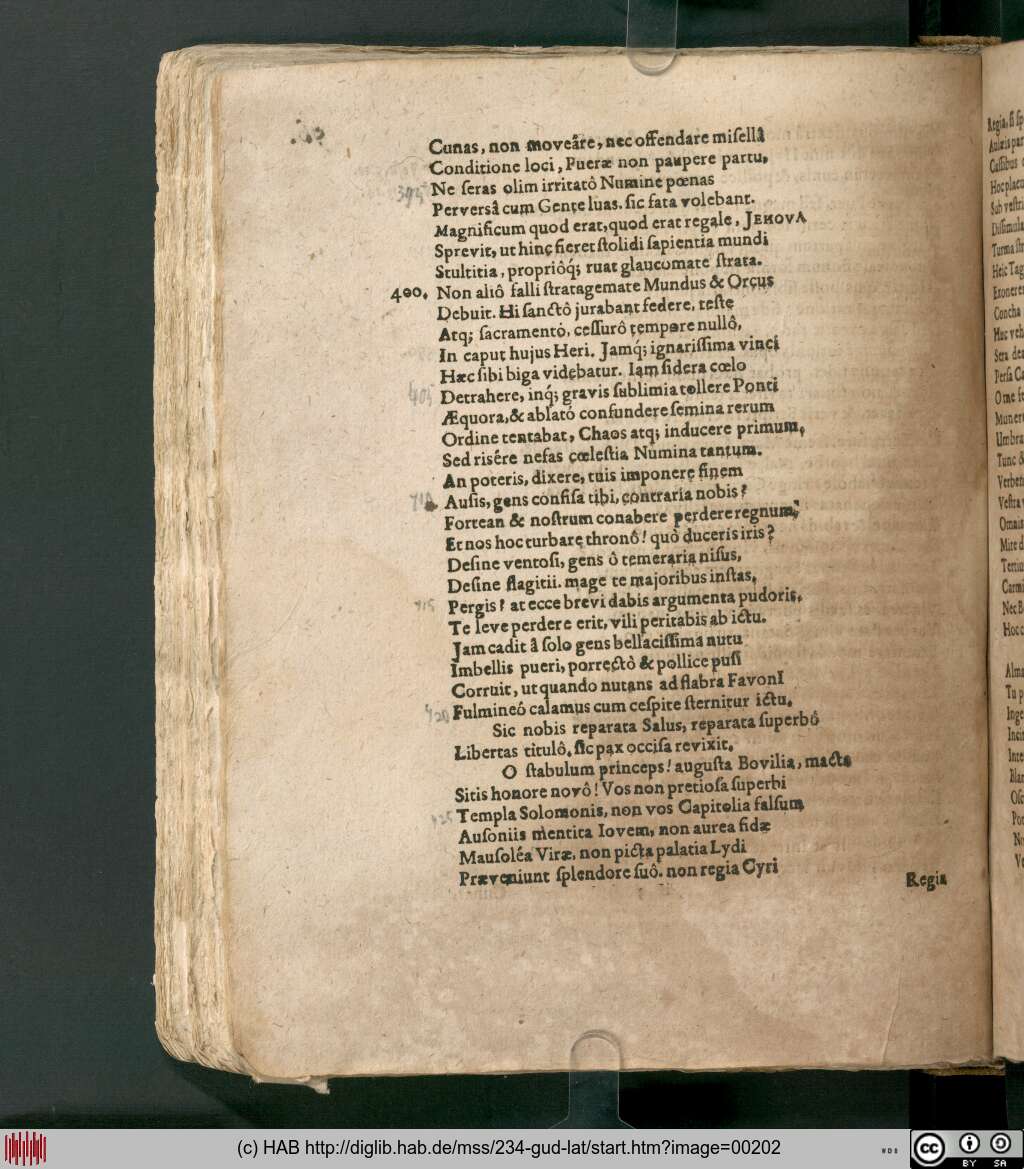 Cunas, non moveâre, nec offendare misellâ
Conditione loci, Pueræ non paupere partu,
395
Ne seras olim irritatô Numine pœnas
Perversâ cum Gente luas. sic fata volebant.
Magnificum quod erat, quod erat regale, JEHOVA
Sprevit, ut hinc fieret stolidi sapientia mundi
Stultitia, propriôq́; ruat glaucomate strata.
400. Non aliô falli stratagemate Mundus & Orcus
Debuit. Hi sanctô jurabant federe, teste
Atq; sacramentô, cessurô tempore nullô,
In caput hujus Heri. Jamq́; ignarissima vinci
Hæc sibi biga videbatur. Iam sidera cœlo
405 Detrahere, inq́; gravis sublimia tollere Ponti
Æquora, & ablatô confundere semina rerum
Ordine tentabat, Chaos atq; inducere primum,
Sed risére nefas cœlestia Numina tantum.
An poteris, dixere, tuis imponere finem
410 Ausis, gens confisa tibi, contraria nobis?
Fortean & nostrum conabere perdere regnum,
Et nos hoc turbare thronô! quò duceris iris?
Desine ventosi, gens ô temeraria nisus,
Desine flagitii. mage te majoribus instas,
415 Pergis? at ecce brevi dabis argumenta pudoris,
Te leve perdere erit, vili peritabis ab ictu.
Jam cadit â solo gens bellacissima nutu
Imbellis pueri, porrectô & pollice pusi
Corruit, ut quando nutans ad flabra FavonI
420 Fulmineô calamus cum cespite sternitur ictu.
Sic nobis reparata Salus, reparata superbô
Libertas titulô. sic pax occisa revixit.
O stabulum princeps! augusta Bovilia, macta
Sitis honore novô! Vos non pretiosa superbi
425 Templa Solomonis, non vos Capitolia falsum
Ausoniis mentita Iovem, non aurea fidæ
Mausoléa Viræ, non picta palatia Lydi
Præveniunt splendore suô. non regia Cyri
Regia
Regia, si
Hoc
Sub vestri
Turma
Heic
Concha
Huc
Sera
Persa
Umbra
Tunc
Vestra
Mite
Nec
Hoc
Alma
Tu
(c) HAB http://diglib.hab.de/mss/234-gud-lat/start.htm?image=00202
cc BY SA